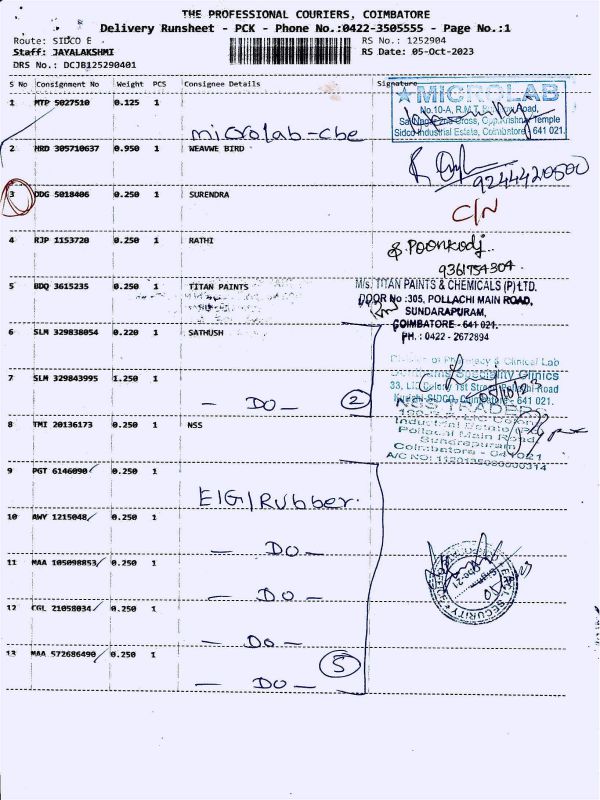 THE PROFESSIONAL COURIERS, COIMBATORE
Delivery Runsheet - PCK - Phone No.:0422-3505555 - Page No.:1
Route: SIDCO E RS No.: 1252904
Staff: JAYALAKSHMI RS Date: 05-Oct-2023
DRS No.: DCJB125290401
S No Consignment No Weight PCS Consignee Details Signature
1 MTP 5027510 0.125 1
microlab-cbe
★MICROLAB
No.10-A, R.M.T. Road,
2nd Cross, Temple
Sidco Industrial Estate, Coimbatore - 641 021.
2 HRD 305710637 0.950 1 WEAVWE BIRD
9244420500
3 DDG 5018406 0.250 1 SURENDRA
C/N
4 RJP 1153720 0.250 1 RATHI
P.Poonkodi
9361754304
5 BDQ 3615235 0.250 1 TITAN PAINTS
M/s. TITAN PAINTS & CHEMICALS (P) LTD.
DOOR No :305, POLLACHI MAIN ROAD,
SUNDARAPURAM,
COIMBATORE - 641 021.
PH. : 0422 - 2672894
6 SLM 329838054 0.220 1 SATHUSH
Division of Pharmacy & Clinical Lab
Speciality Clinics
33, LIC Colony 1st Street Road
SIDCO, Coimbatore - 641 021.
7 SLM 329843995 1.250 1
- DO - 2
8 TMI 20136173 0.250 1 NSS
NSS TRADERS
Industrial Estate
Pollachi Main Road
Sundrapuram
Coimbatore - 641021
9 PGT 6146090 0.250 1
EIG/Rubber.
10 AWY 1215048 0.250 1
- DO -
11 MAA 105098853 0.250 1
- DO -
12 CGL 21058034 0.250 1
- DO -
13 MAA 572686490 0.250 1
- DO - 5
SECURITY